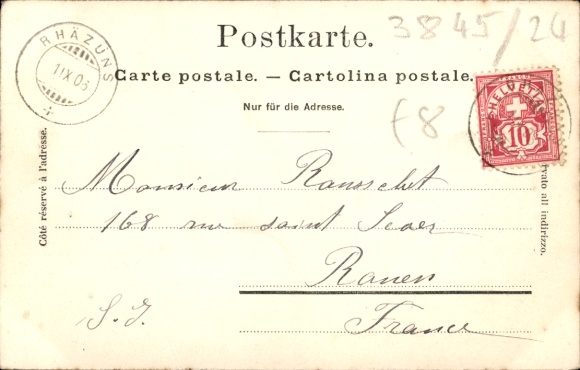 3845/24
Postkarte.
RHÄZÜNS
1 IX 03
Carte postale. — Cartolina postale.
Nur für die Adresse.
£8
HELVETIA
10
Côté réservé à l'adresse.
rvato all indirizzo.
Monsieur Ranoschet
168 rue saint Sever
Rouen
S. J.
France